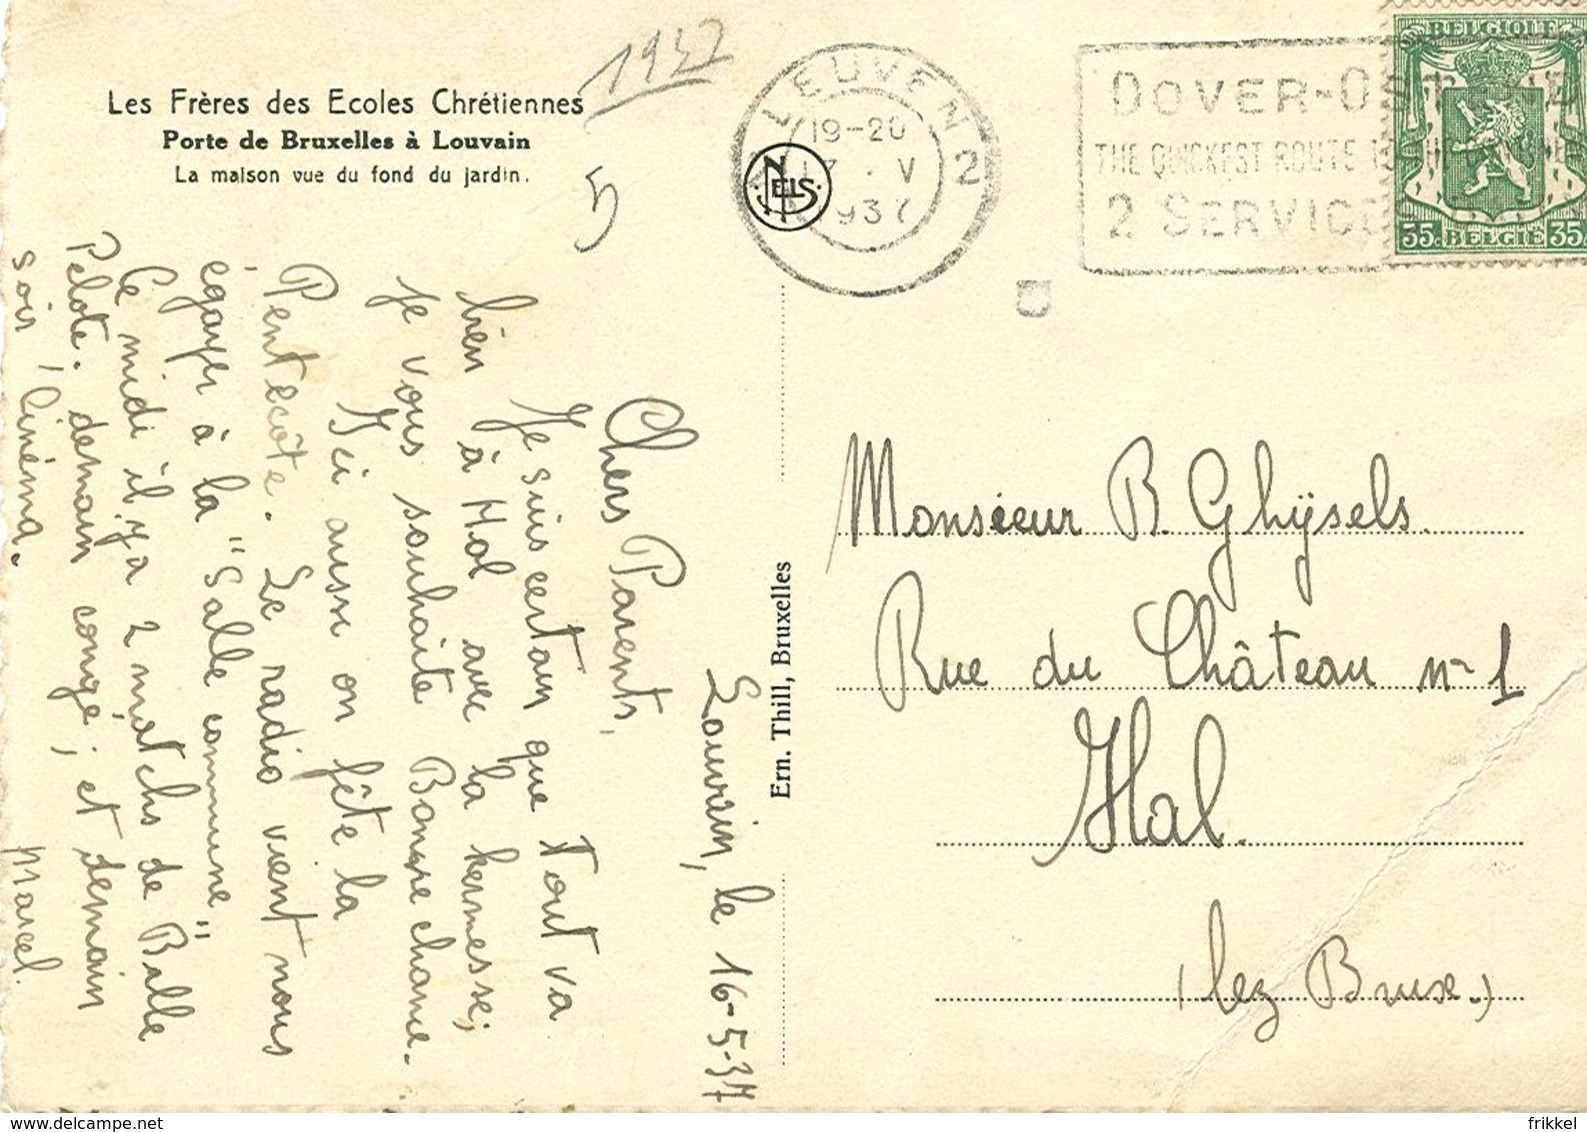 Les Frères des Ecoles Chrétiennes
Porte de Bruxelles à Louvain
La maison vue du fond du jardin.
1937
5
NELS
LEUVEN
19-20
V
1937
2
DOVER-OSTENDE
THE QUICKEST ROUTE
2 SERVICES
BELGIQUE
35c BELGIE 35c
Louvain, le 16-5-37
Chers Parents,
Je suis certain que tout va
bien à Hal avec la kermesse;
Je vous souhaite Bonne chance.
Ici aussi on fête la
Pentecôte. Le radio vient nous
égayer à la "Salle commune"
Ce midi il y a 2 matchs de Balle
Pelote. demain congé; et demain
soir, Cinéma. Marcel.
Ern. Thill, Bruxelles
Monsieur B. Ghÿsels.
Rue du Château n° 1
Hal.
(lez Brux.)
© frikkel